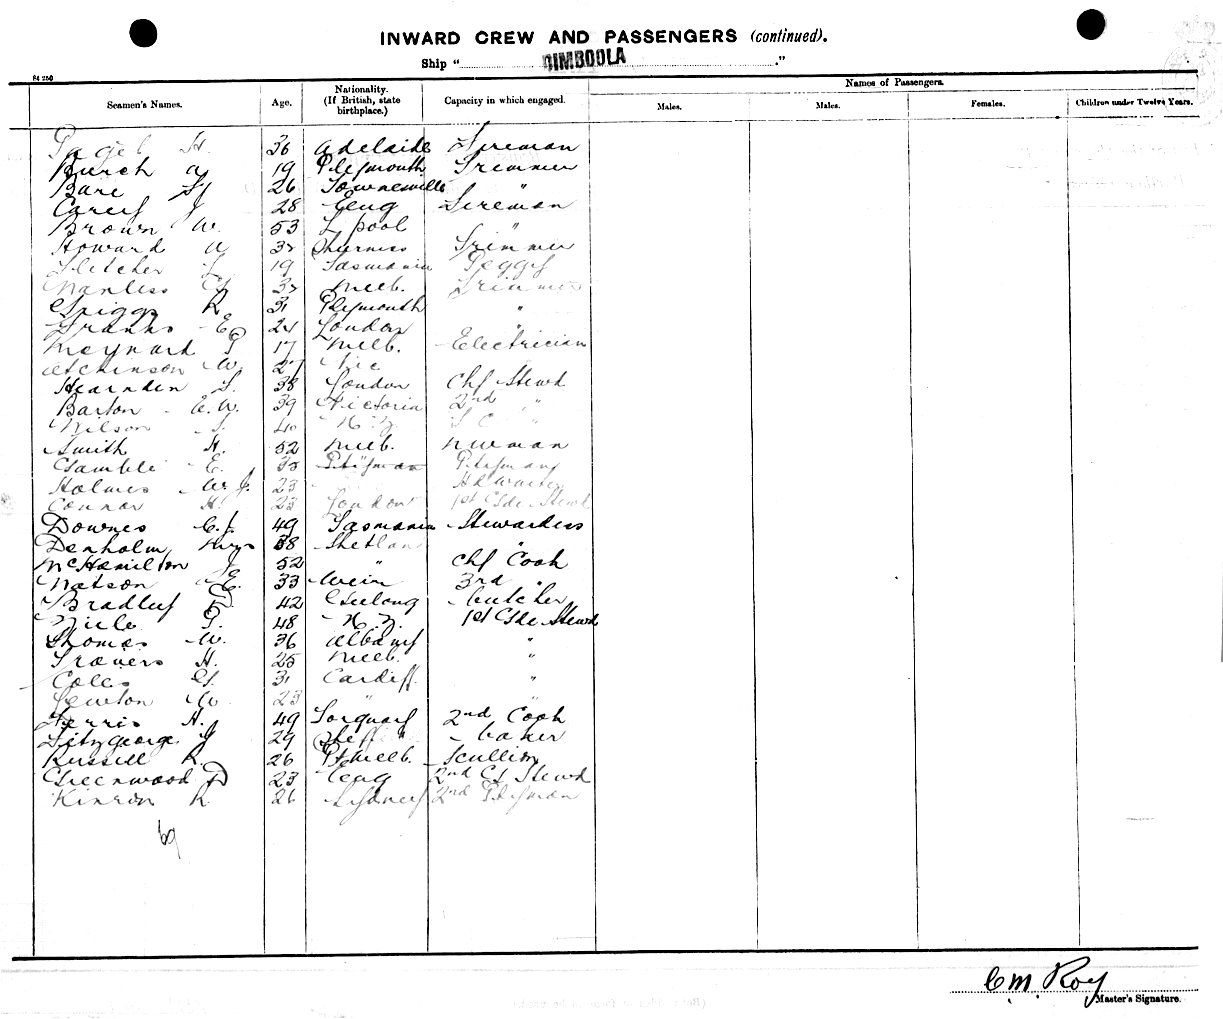 INWARD CREW AND PASSENGERS (continued).
Ship " DIMBOOLA ."
84 250
Seamen's Names. Age. Nationality. (If British, state birthplace.) Capacity in which engaged. Names of Passengers.
Males. Males. Females. Children under Twelve Years.
H. 36 Adelaide Fireman
Burch A 19 Plymouth Trimmer
Bare 26 Townsville "
Carey J 28 Geelong Fireman
Brown W. 53 L'pool "
Howard A 32 Trimmer
Fletcher L. 19 Tasmania Peggy
Manless 32 Melb. Trimmer
Spiggs R 31 Plymouth "
Franks E 21 London "
Meynard P 17 Melb. Electrician
W. 27 Vic
Hearnden S. 38 London Chf Stewd
Barton E.W. 39 Victoria 2nd "
Wilson S. 40 N.Z.
Smith H. 52 Melb.
Gamble E. 35 Ptyman
Holmes W.J. 23
Connor H. 23 London 1st Cl Stewd
Downes C.J. 49 Tasmania Stewardess
Denholm Mrs 38 Shetland "
McHamilton J 52 " Chf Cook
Watson E. 33 3rd "
Bradley 42 Geelong butcher
P. 48 N.Z. 1st Stewd
Thomas W. 36 Albany "
Travers H. 25 Melb. "
Coles 31 Cardiff "
Newton W 23 " "
Ferris H. 49 Torquay 2nd Cook
Fitzgeorge J 29 baker
Russell R. 26 Pt Melb. Scullion
Greenwood P 23 2nd Cl Stewd
R. 26 Sydney 2nd
69
C. M. Roy
Master's Signature.